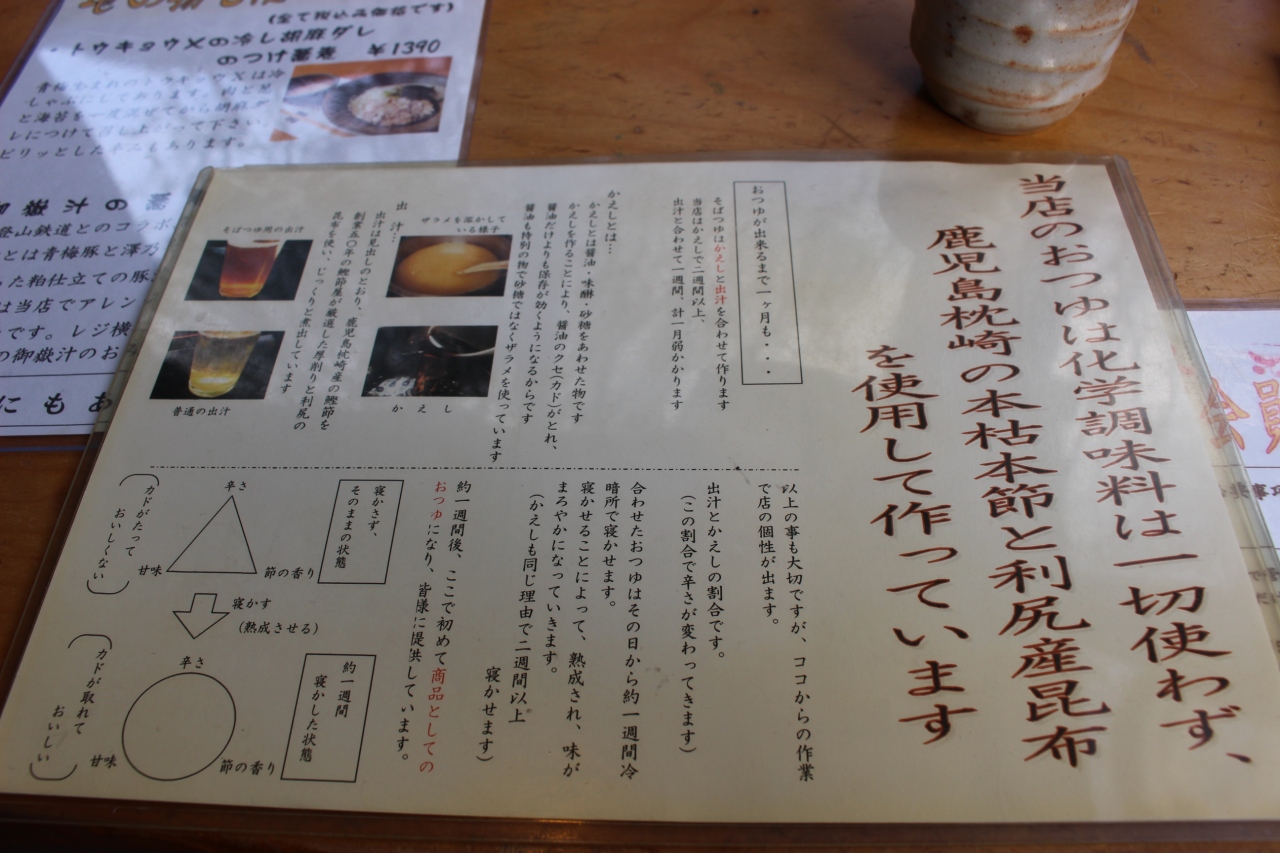 当店のおつゆは化学調味料は一切使わず、
鹿児島枕崎の本枯本節と利尻産昆布
を使用して作っています
おつゆが出来るまで一ヶ月も・・・
そばつゆはかえしと出汁を合わせて作ります
当店はかえしで二週間以上、
出汁と合わせて一週間、計一月弱かかります
かえしとは…
かえしとは醤油・味醂・砂糖をあわせた物です
かえしを作ることにより、醤油のクセ(カド)がとれ、
醤油だけよりも保存が効くようになるからです
醤油も特別の物で砂糖ではなくザラメを使っています
ザラメを溶かして
いる様子
かえし
出汁…
出汁は見出しのとおり、鹿児島枕崎産の鰹節を
創業五〇年の鰹節屋が厳選した厚削りと利尻の
昆布を使い、じっくりと煮出しています
そばつゆ用の出汁
普通の出汁
以上の事も大切ですが、ココからの作業
で店の個性が出ます。
出汁とかえしの割合です。
(この割合で辛さが変わってきます)
合わせたおつゆはその日から約一週間冷
暗所で寝かせます。
寝かせることによって、熟成され、味が
まろやかになっていきます。
(かえしも同じ理由で二週間以上
寝かせます)
約一週間後、ここで初めて商品としての
おつゆになり、皆様に提供しています。
寝かさず、
そのままの状態
辛さ
甘味
節の香り
カドがたって
おいしくない
寝かす
(熟成させる)
約一週間
寝かした状態
辛さ
甘味
節の香り
カドが取れて
おいしい
(全て税込み価格です)
・トウキョウXの冷し胡麻ダレ
のつけ蕎麦 ¥1390
青梅生まれのトウキョウXは冷
しゃぶにしております。肉と
と海苔を一度混ぜてから胡麻ダ
レにつけて召し上がって下さい
ピリッとした辛二もあります。
御嶽汁の
登山鉄道とのコラボ
とは青梅豚と澤乃
た粕仕立ての豚
は当店でアレン
です。レジ横
の御嶽汁のお
にもあ